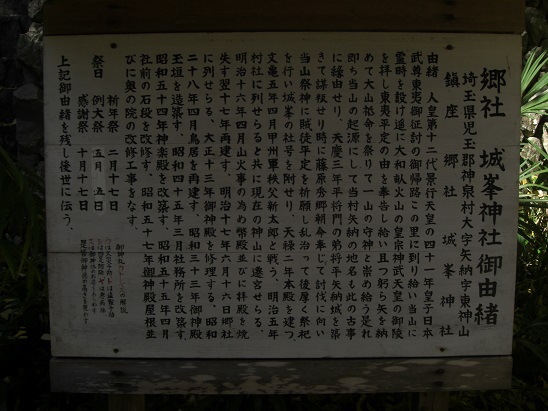 郷社 城峯神社御由緒
埼玉県児玉郡神泉村大字矢納字東神山
鎮座 郷社 城峯神社
由緒 人皇第十二代景行天皇の四十一年皇子日本
武尊東夷御征討の御帰路この里に到り給い当山に
霊畤を設け遥に大和畝火山の皇宗神武天皇の御陵
を拝し東夷平定の由を奉告し給い且つ躬ら矢を納
めて大山祗命を祭りて一山の守神と崇め給う是れ
即ち当山の起源にして当村矢納の地名も此の古事
に縁由せり、天慶三年平将門の弟将平矢納城を築
きて謀叛せり時に藤原秀郷朝命奉じて討伐に向い
当山祭神に賊徒平定を祈願し乱治って後厚く祭祀
を行い城峯の社号を附せり、天禄二年本殿を建つ
文亀五年四月甲州軍秩父新太郎と戦う、明治五年
村社に列せらると共に現在の神山に遷宮せらる、
明治十六年四月山火事の為め幣殿並びに拝殿を焼
失す翌十七年再建す、明治十七年六月十六日郷社
に列せらる、大正十三年御神殿を修理する、昭和
二十八年四月鳥居を再建す、昭和三十三年御神殿
玉垣を造築す、昭和四十五年三月社務所を改築す、
昭和五十四年神楽殿を改築す、昭和五十五年四月
社前の石段を改修す、昭和五十七年御神殿屋根並
びに奥の院の改修工事をなす、
祭日 祈年祭 二月十七日
例大祭 五月 五日
感謝祭 十月十七日
上記御由緒を残し後世に伝う、